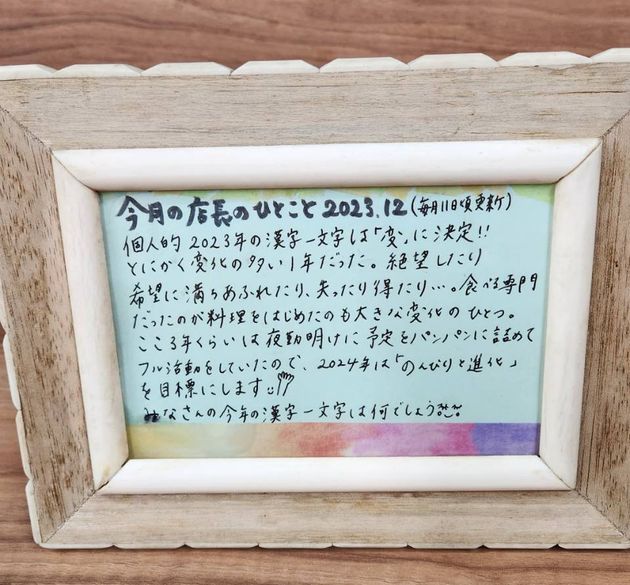 今月の店長のひとこと 2023.12 (毎月11日頃更新)
個人的 2023年の漢字一文字は「変」に決定!!
とにかく変化の多い1年だった。絶望したり
希望に満ちあふれたり、失ったり得たり…。食べる専門
だったのが料理をはじめたのも大きな変化のひとつ。
ここ3年くらいは夜勤明けに予定をパンパンに詰めて
フル活動をしていたので、2024年は「のんびりと進化」
を目標にします
みなさんの今年の漢字一文字は何でしょう